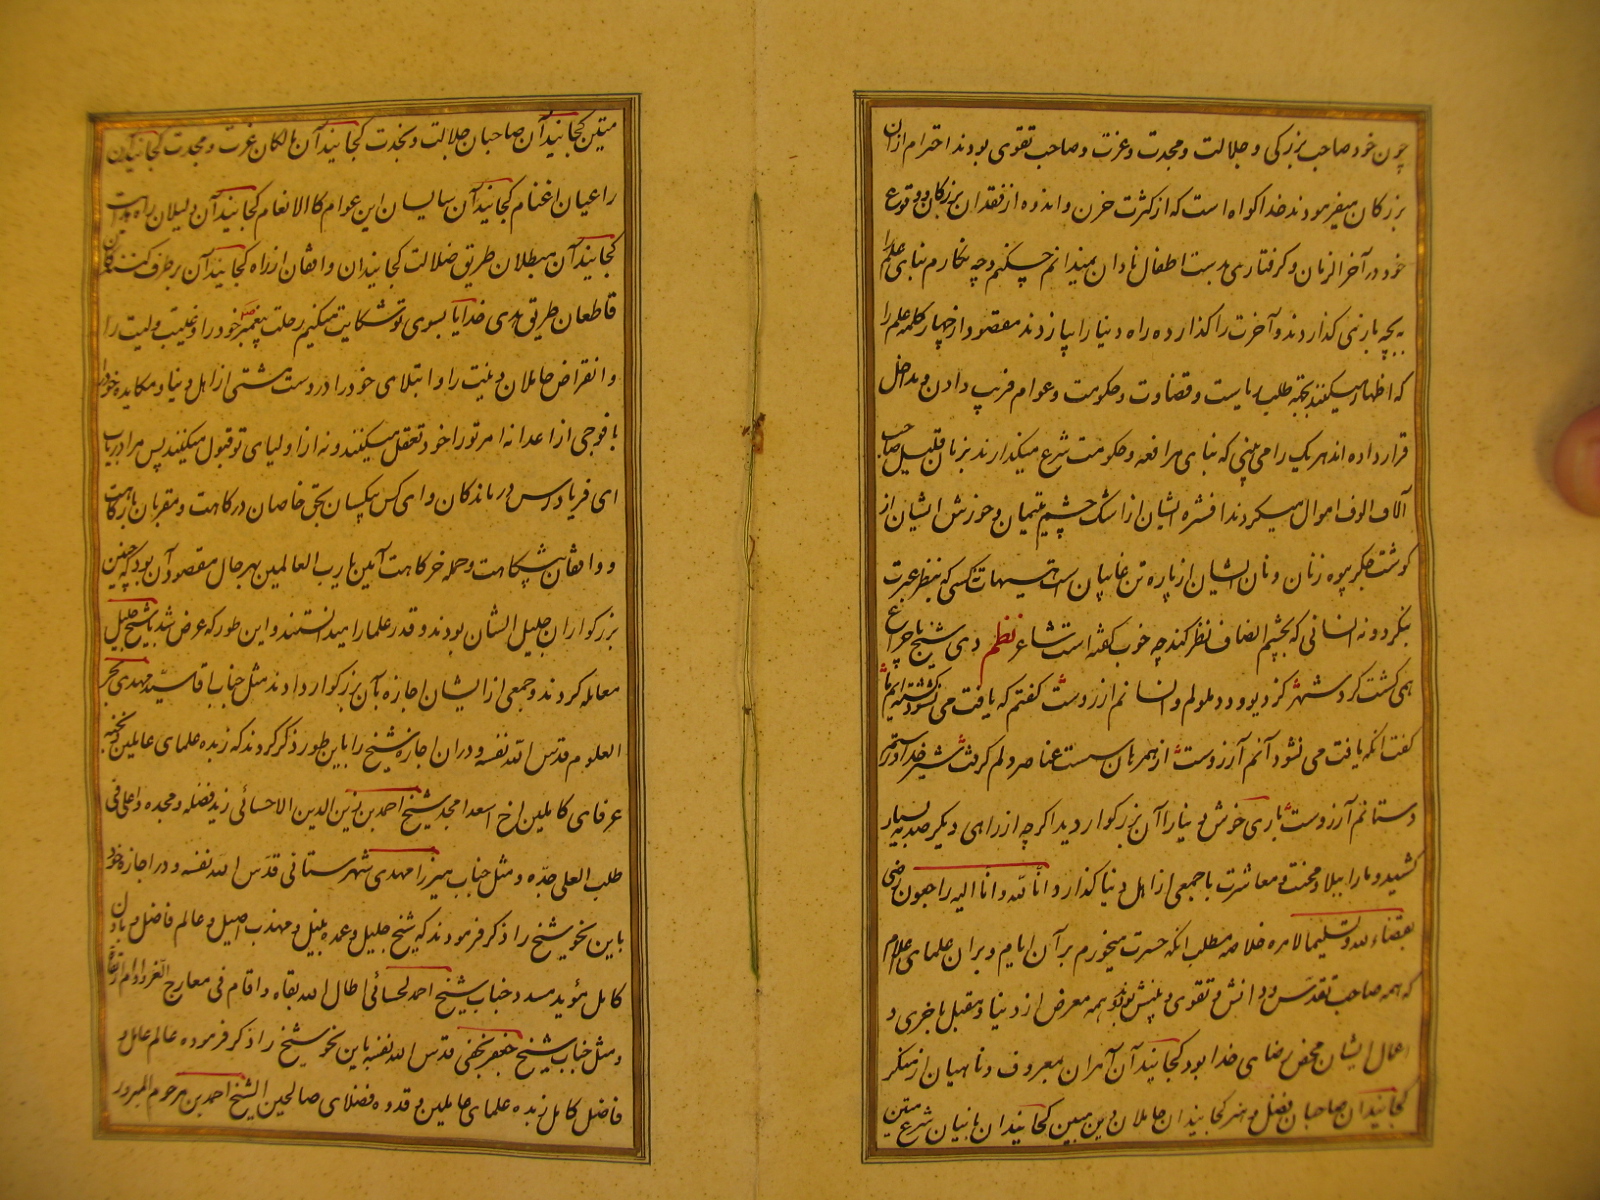 چون خود صاحب بزرکی و جلالت و مجدت و عزت و صاحب تقوی بودند احترام ازان
بزرکان میفرمودند خدا کواه است که از کثرت حزن و اندوه از فقدان بزرکان و وقوع
خود در آخر الزمان و کرفتاری بدست اطفال نادان نمیدانم چکنم و چه نکارم بنای علم را
ببچه بازی کذاردند و آخرت را کذارده راه دنیا را بپا زدند مقصود از چهار کلمه علم را
که اظهار میکنند بجهة طلب ریاست و قضاوت و حکومت و عوام فریب دادن و مداخل
قرار داده اند هر یک را می بینی که بنای مرافعه و حکومت شرع میکذارند بزمان قلیل صاحب
آلاف الوف اموال میکردند افشره ایشان از اشک چشم یتیمان و خورش ایشان از
کوشت جکر بیوه زنان و نان ایشان از پاره تن غایبان است هیهات کسی که بنظر عبرت
بنکرد و نه انسانی که بچشم انصاف نظر کند چه خوب کفته است شاعر نظم دی شیخ با چراغ
همی کشت کرد شهر کز دیو و دد ملولم و انسانم آرزوست کفتم که یافت می نشود جسته ایم ما
کفت انکه یافت می نشود آنم آرزوست از همرهان سست عناصر دلم کرفت شیر خدا و رستم
دستانم آرزوست باری خوش دنیا را آن بزرکوار دید اکر چه از راهی دیکر صدمه بسیار
کشید و ما را ببلا و محنت و معاشرت با جمعی از اهل دنیا کذارد و انا لله و انا الیه راجعون رضی
بقضاء لله و تسلیما لامره خلاصه مطلب انکه حسرت میخورم بر آن ایام و بران علمای اعلام
که همه صاحب تقدس و دانش و تقوی و بینش بودند و همه معرض از دنیا و مقبل باخری و
اعمال ایشان محض رضای خدا بود کجائیند آن آمران بمعروف و ناهیان از منکر
کجائیند ان صاحبان فضل و هنر کجائیند ان حاملان دین مبین کجائیند ان بانیان شرع متین
متین کجائیند آن صاحبان جلالت و نجدت کجائیند آن مالکان عزت و مجدت کجائیند آن
راعیان اغنام کجائیند آن سایسان این عوام کالانعام کجائیند آن دلیلان راه هدایت
کجائیند آن مبطلان طریق ضلالت کجائیند ان واقفان از راه کجائیند آن برطرف کنندکان
قاطعان طریق هدی خدایا بسوی تو شکایت میکنیم رحلت پیغمبر خود را و غیبت ولیت را
و انقراض حاملان دینت را و ابتلای خود را در دست مشتی از اهل دنیا و مکایده خود را
با فوجی از اعدا نه امر تو را خود تعقل میکنند و نه از اولیای تو قبول میکنند پس مرا دریاب
ای فریادرس درماندکان و ای کس بیکسان بحق خاصان درکاهت و مقربان بارکاهت
و واقفان پیشکاهت و جمله خرکاهت آمین یا رب العالمین بهر حال مقصود آن بود که چنین
بزرکواران جلیل الشان بودند و قدر علما را میدانستند و این طور که عرض شد با شیخ جلیل
معامله کردند و جمعی از ایشان اجازه بآن بزرکوار دادند مثل جناب اقا سید مهدی بحر
العلوم قدس الله نفسه و دران اجازه شیخ را باین طور ذکر کردند که زبده علمای عاملین و نخبه
عرفای کاملین اخ اسعد امجد شیخ احمد بن زین الدین الاحسائی زید فضله و مجده و اعلی فی
طلب العلی جده و مثل جناب میرزا مهدی شهرستانی قدس الله نفسه و در اجازه خود
باین نحو شیخ را ذکر فرمودند که شیخ جلیل و عمده نبیل و مهذب اصیل و عالم فاضل و باذل
کامل مؤید مسدد جناب شیخ احمد لحسائی اطال الله بقاه و اقام فی معارج العز و ادام ارتقاه
و مثل جناب شیخ جعفر نجفی قدس الله نفسه باین نحو شیخ را ذکر فرموده عالم عامل و
فاضل کامل زبده علمای عاملین و قدوه فضلای صالحین الشیخ احمد بن مرحوم المبرور